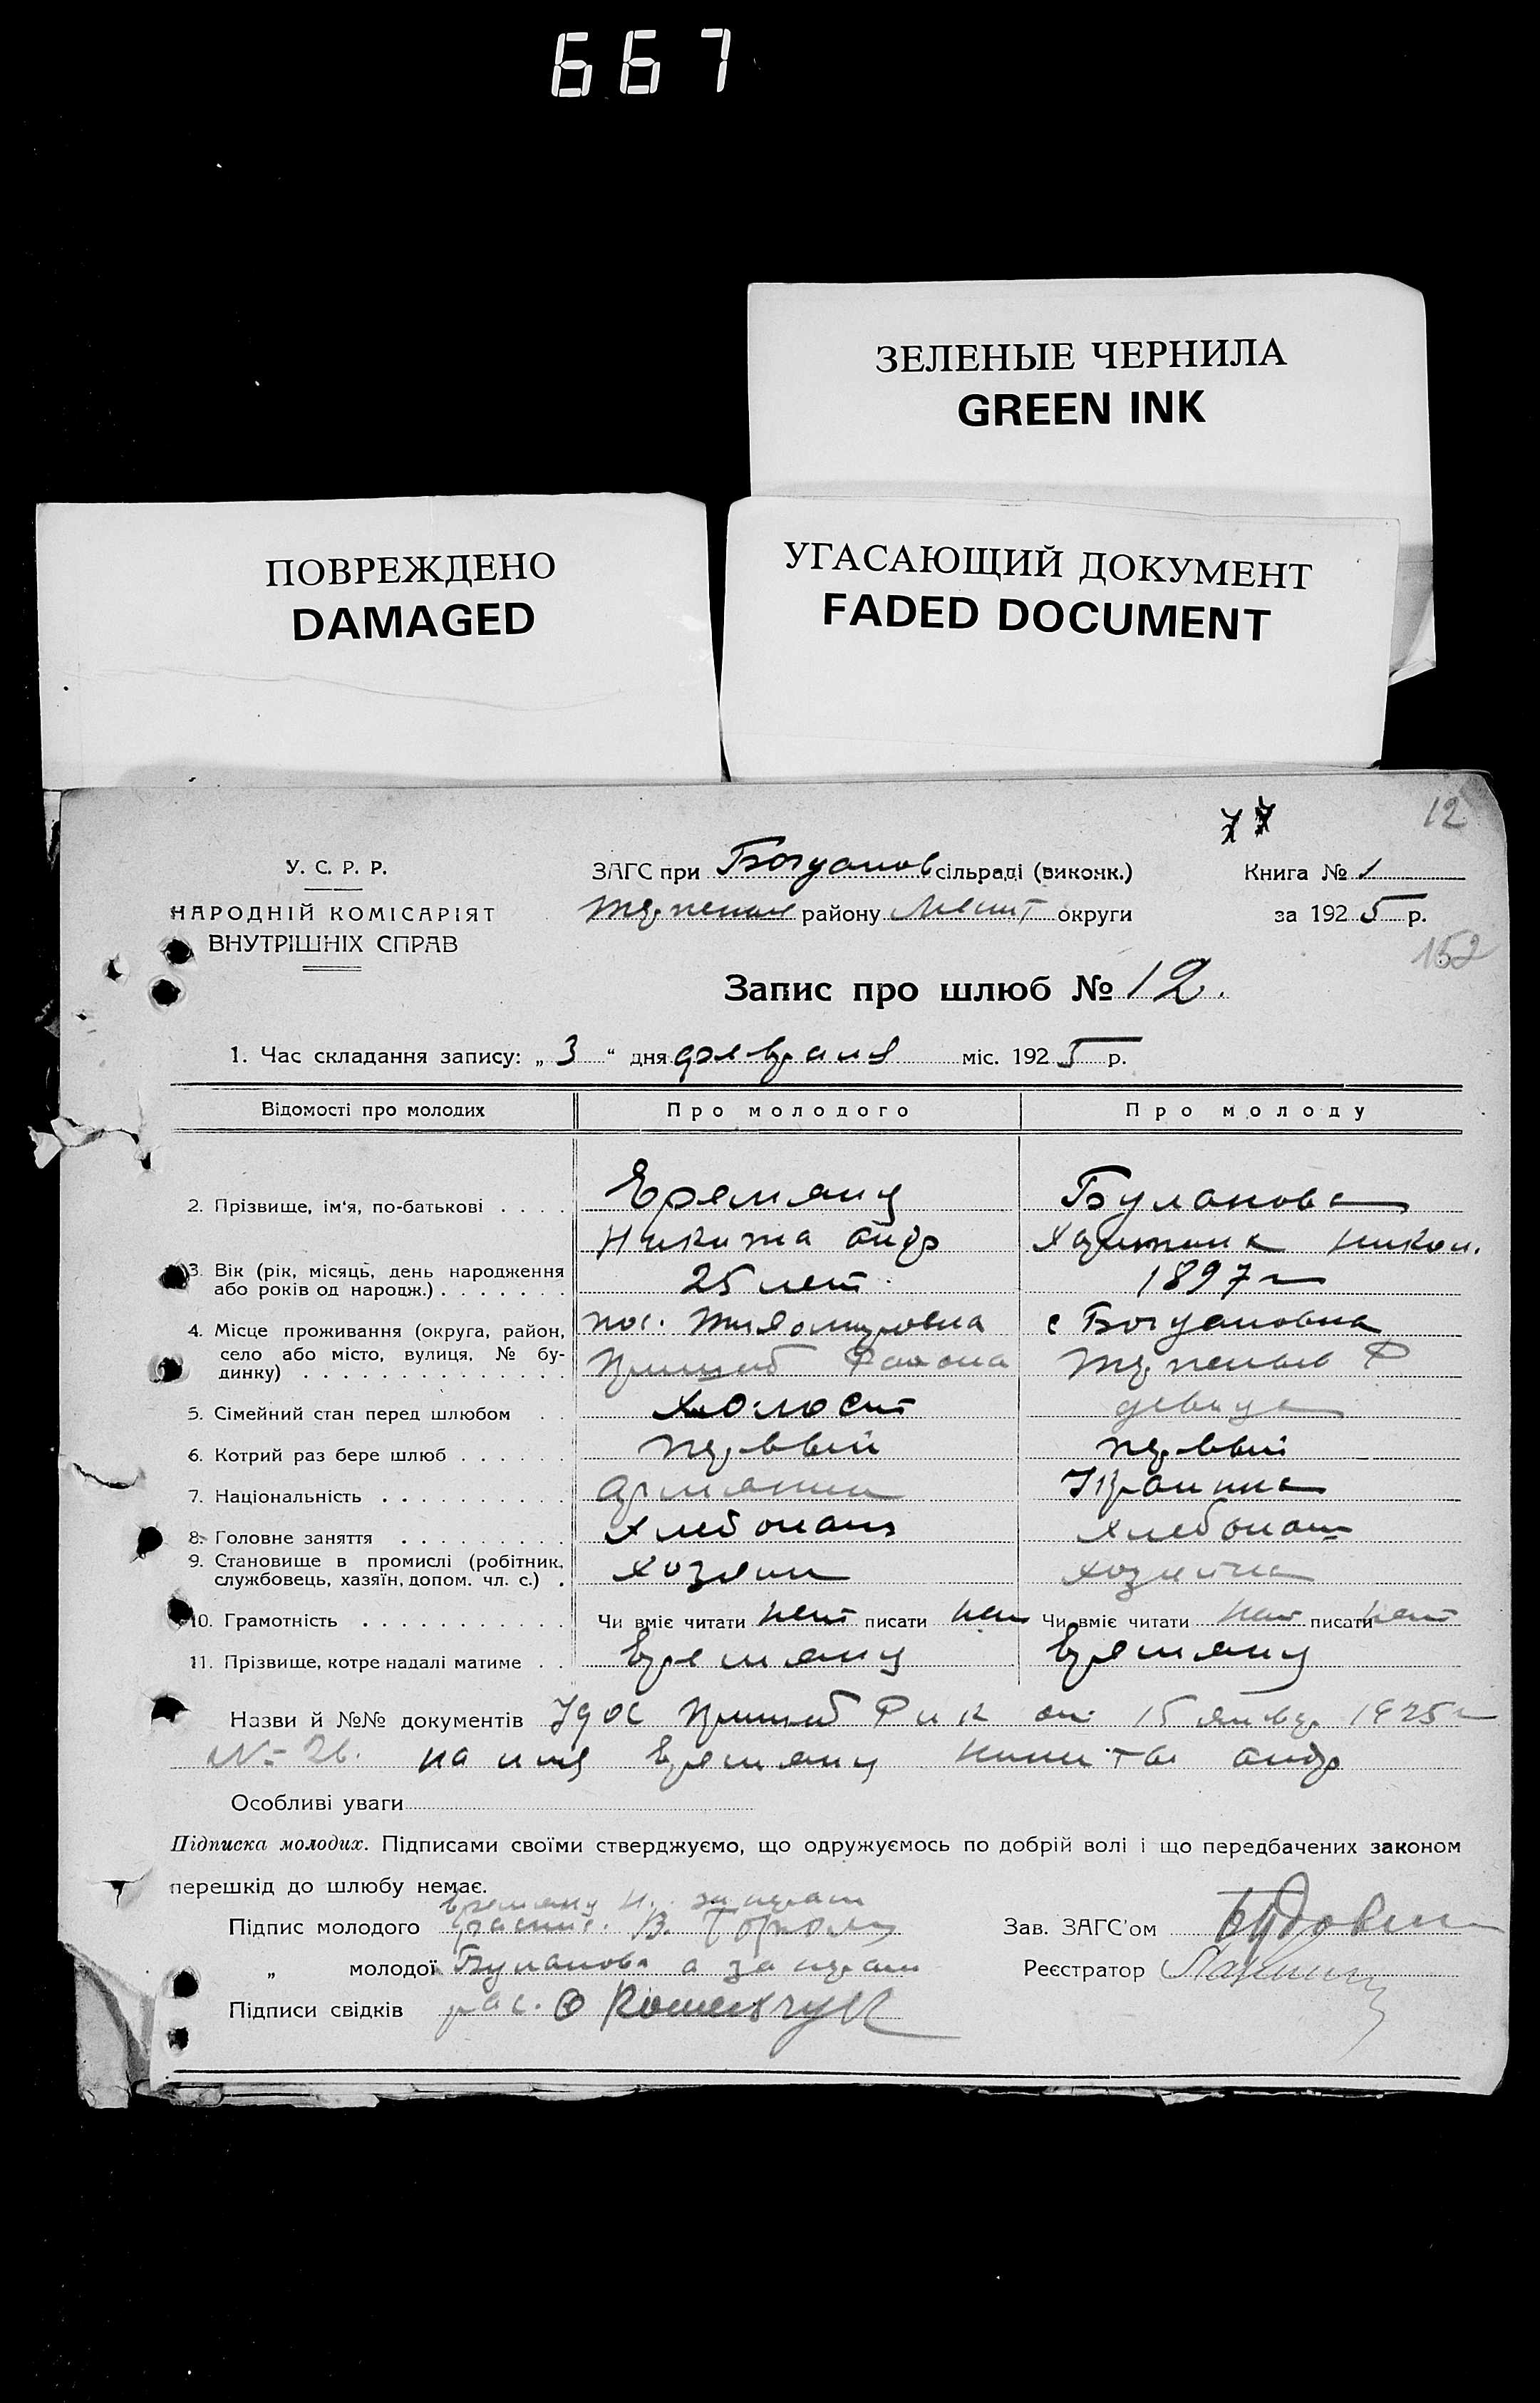 667
ЗЕЛЕНЫЕ ЧЕРНИЛА
GREEN INK
ПОВРЕЖДЕНО
DAMAGED
УГАСАЮЩИЙ ДОКУМЕНТ
FADED DOCUMENT
12
У. С. Р. Р.
НАРОДНІЙ КОМІСАРІЯТ
ВНУТРІШНІХ СПРАВ
ЗАГС при Богданов сільраді (виконк.)
району Мелит округи
Книга № 1
за 1925 р.
152
Запис про шлюб № 12.
1. Час складання запису: „ 3 “ дня февраля міс. 1925 р.
Відомості про молодих Про молодого Про молоду
2. Прізвище, ім'я, по-батькові . . . . Еремянц Буланова
Никита андр Никол.
3. Вік (рік, місяць, день народження або років од народж.) . . . . . . . 25 лет 1897 г
4. Місце проживання (округа, район, село або місто, вулиця, № будинку) . . . . . . . . . . . . . . пос. с Богдановка
Пришиб Района Р
5. Сімейний стан перед шлюбом . . холост девица
6. Котрий раз бере шлюб . . . . . . первый первый
7. Національність . . . . . . . . . . армянин Украинка
8. Головне заняття . . . . . . . . . хлебопаш хлебопаш
9. Становище в промислі (робітник, службовець, хазяїн, допом. чл. с.) . хозяин хозяйка
10. Грамотність . . . . . . . . . . . Чи вміє читати нет писати нет Чи вміє читати нет писати нет
11. Прізвище, котре надалі матиме . . Еремянц Еремянц
Назви й №№ документів Удос Пришиб Рик от 15 январ 1925 г
№ 26. на имя Еремянц Никиты андр
Особливі уваги
Підписка молодих. Підписами своїми стверджуємо, що одружуємось по добрій волі і що передбачених законом
перешкід до шлюбу немає.
Еремянц Н. за неграм
Підпис молодого распис. В.
Зав. ЗАГС'ом
„ молодої Буланова а за неграм
Реєстратор
Підписи свідків рас.